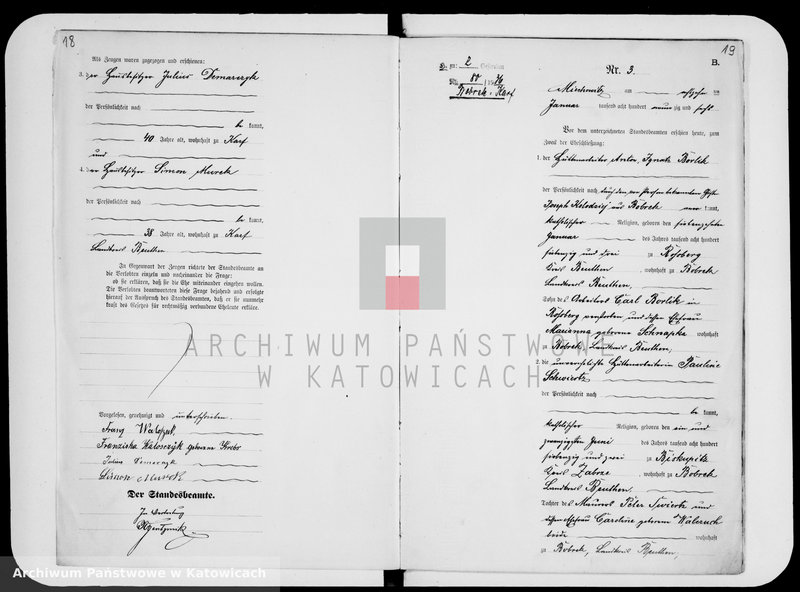 18
Als Zeugen waren zugezogen und erschienen:
3. der Hausbesitzer Julius Demarczyk
der Persönlichkeit nach
be kannt,
40 Jahre alt, wohnhaft zu Karf
und
4. der Hausbesitzer Simon Murek
der Persönlichkeit nach
be kannt,
38 Jahre alt, wohnhaft zu Karf
Landkreis Beuthen
In Gegenwart der Zeugen richtete der Standesbeamte an
die Verlobten einzeln und nacheinander die Frage:
ob sie erklären, daß sie die Ehe miteinander eingehen wollen.
Die Verlobten beantworteten diese Frage bejahend und erfolgte
hierauf der Ausspruch des Standesbeamten, daß er sie nunmehr
kraft des Gesetzes für rechtmäßig verbundene Eheleute erkläre.
Vorgelesen, genehmigt und unterschrieben
Franz
Franziska geborene
Julius Demarczyk
Simon Murek
Der Standesbeamte.
In Vertretung
19
B.
2
80
Bobrek-Karf
Nr. 3.
Miechowitz am achtzehn ten
Januar tausend acht hundert neun zig und sechs
Vor dem unterzeichneten Standesbeamten erschien heute, zum
Zweck der Eheschließung:
1. der Hüttenarbeiter Anton Ignatz Borlik
der Persönlichkeit nach durch den, von Person bekannten
Joseph aus Bobrek kannt,
katholischer Religion, geboren den siebenzehnten
Januar des Jahres tausend acht hundert
siebenzig und drei zu Roßberg
Kreis Beuthen, wohnhaft zu Bobrek
Landkreis Beuthen,
Sohn des Arbeiters Carl Borlik in
Roßberg verstorben und dessen Ehefrau
Marianna geborene Schnapka wohnhaft
zu Bobrek, Landkreis Beuthen,
2. die unverehelichte Hüttenarbeiterin Pauline
Schwiertz
der Persönlichkeit nach
be kannt,
katholischer Religion, geboren den ein und
zwanzigsten Juni des Jahres tausend acht hundert
siebenzig und zwei zu Biskupitz
Kreis Zabrze, wohnhaft zu Bobrek
Landkreis Beuthen,
Tochter des Peter und
dessen Ehefrau Caroline geborene
beide wohnhaft
zu Bobrek, Landkreis Beuthen,
ARCHIWUM PAŃSTWOWE
W KATOWICACH
Archiwum Państwowe w Katowicach